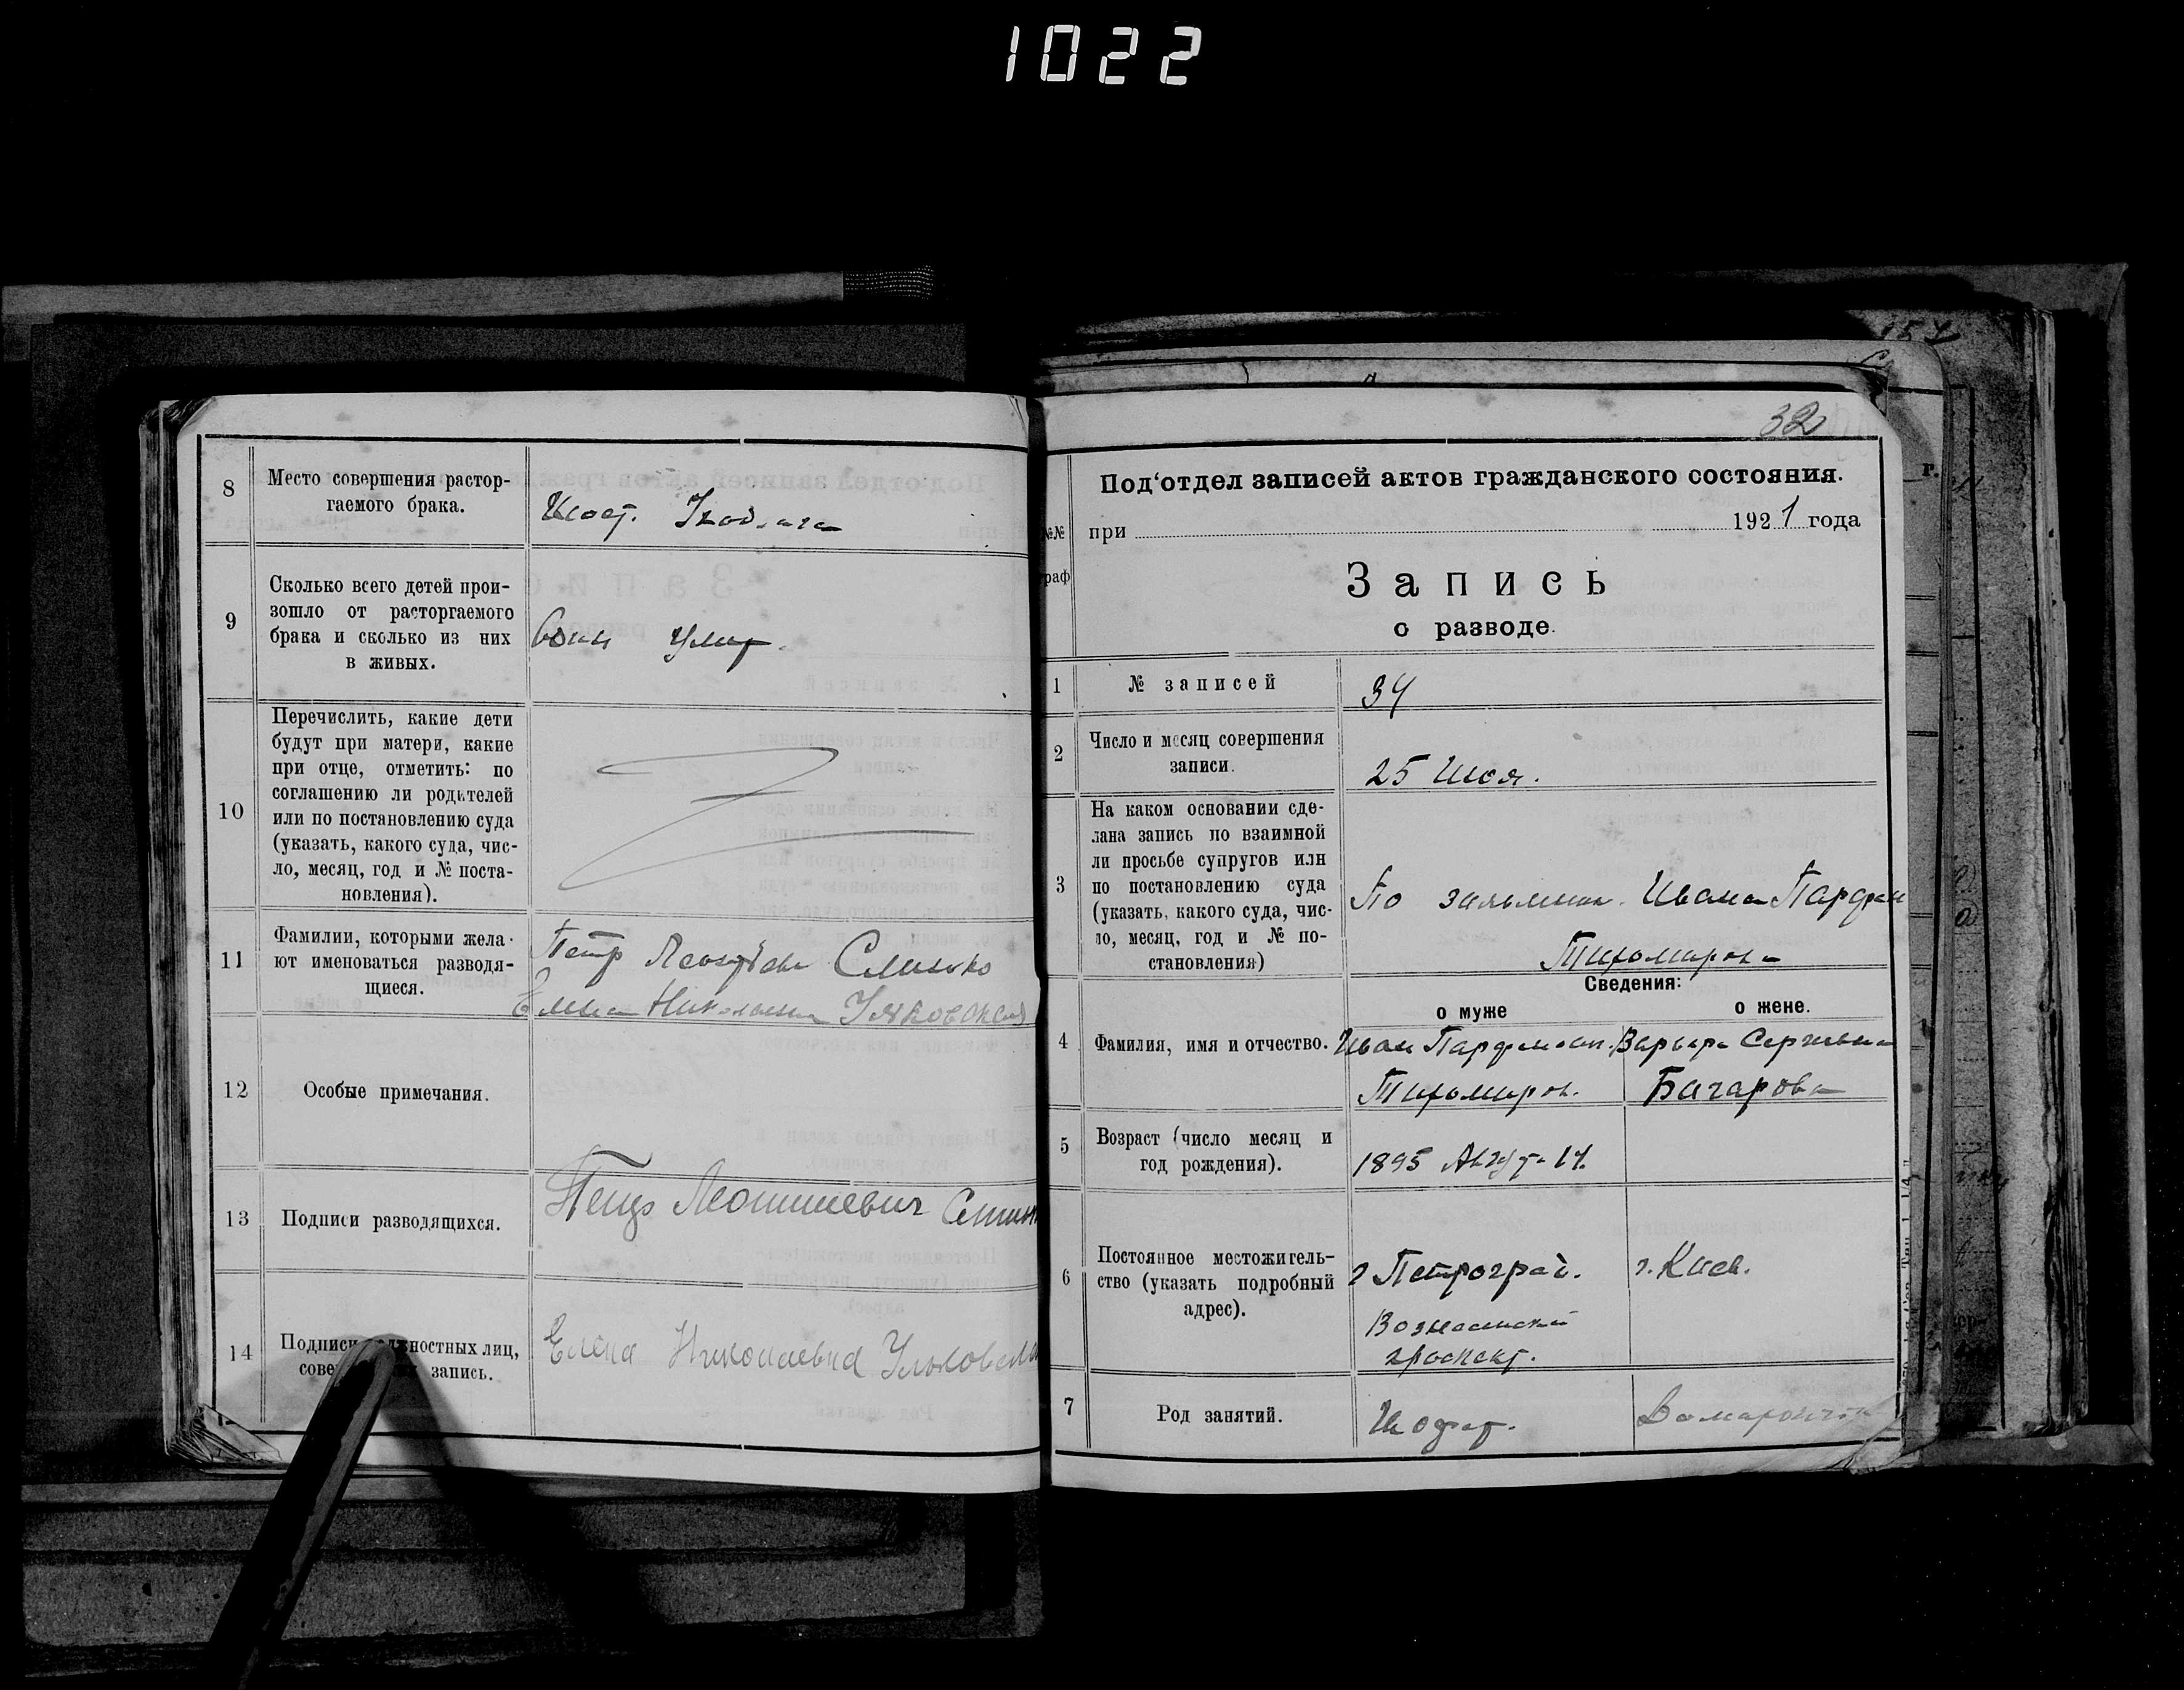 1022
8 Место совершения растор-
гаемого брака.
9 Сколько всего детей прои-
зошло от расторгаемого
брака и сколько из них
в живых.
умер.
10 Перечислить, какие дети
будут при матери, какие
при отце, отметить: по
соглашению ли родителей
или по постановлению суда
(указать, какого суда, чис-
ло, месяц, год и № поста-
новления).
11 Фамилии, которыми жела-
ют именоваться разводя-
щиеся.
Петр
Елена Николаевна
12 Особые примечания.
13 Подписи разводящихся.
Петр
14 Подписи лиц,
запись.
Елена Николаевна
32
Под‘отдел записей актов гражданского состояния.
при 1921 года
№№
граф
Запись
о разводе.
1 № записей 34
2 Число и месяц совершения
записи.
25 Июля.
3 На каком основании сде-
лана запись по взаимной
ли просьбе супругов или
по постановлению суда
(указать, какого суда, чис-
ло, месяц, год и № по-
становления)
По Ивана
Тихомирова
Сведения:
о муже о жене.
4 Фамилия, имя и отчество. Иван Варвара Сергеевна
Тихомиров. Бачарова
5 Возраст (число месяц и
год рождения).
1895 Августа 14.
6 Постоянное местожитель-
ство (указать подробный
адрес).
г Петроград. г. Киев.
Вознесенский
проспект.
7 Род занятий.